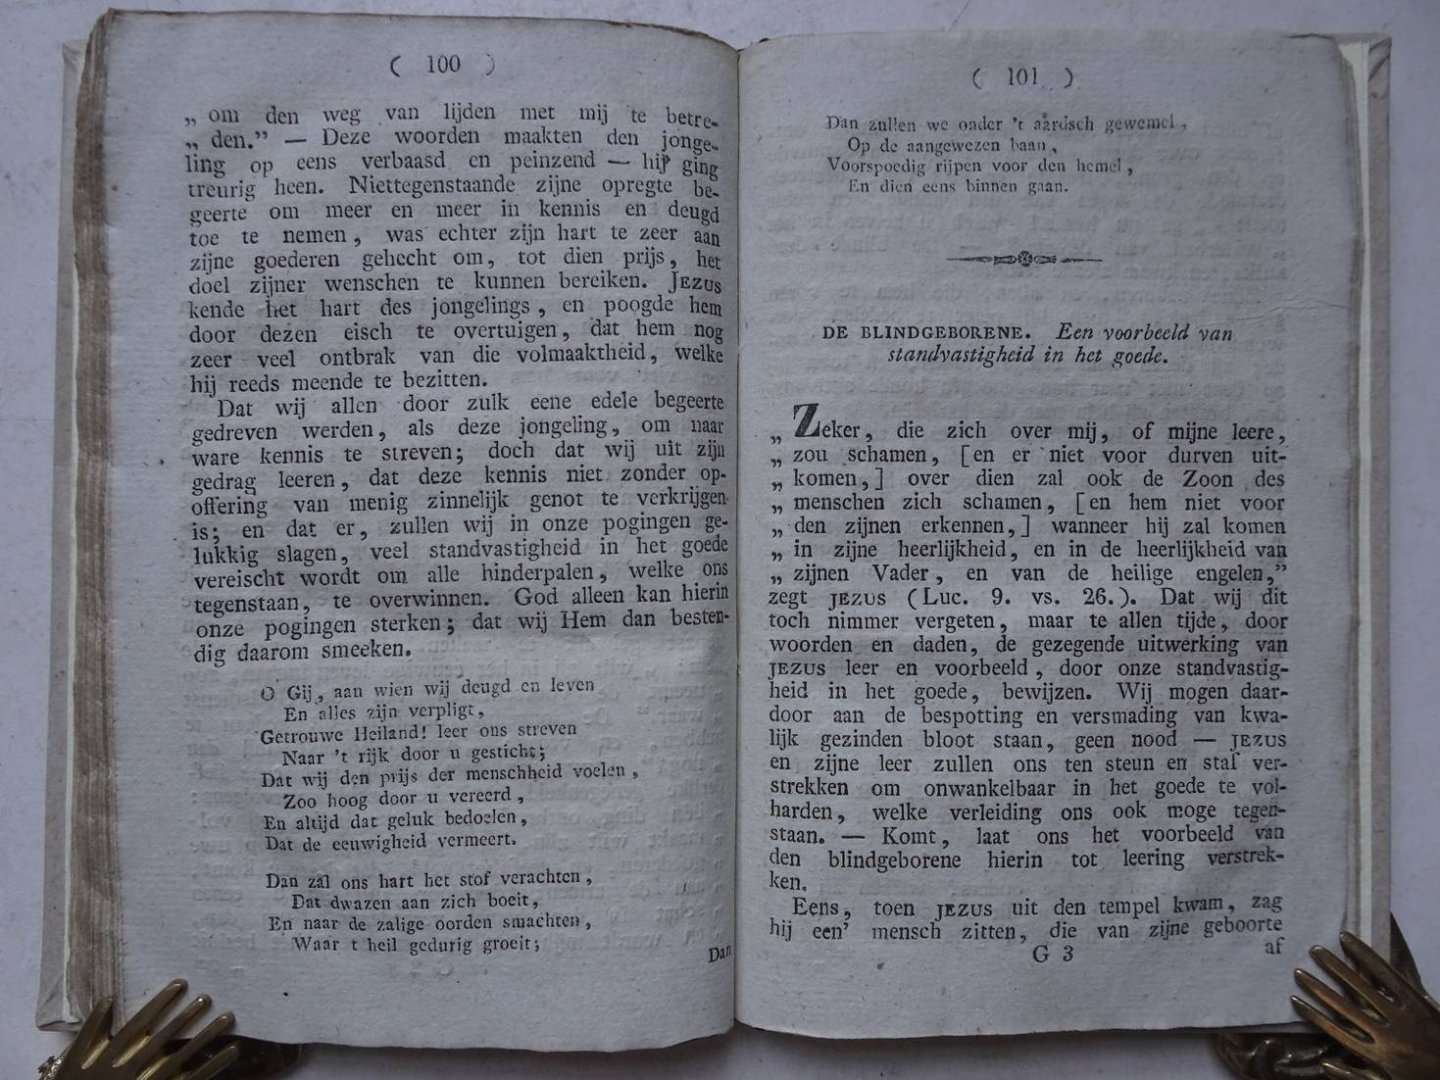 ( 100 )
„ om den weg van lijden met mij te betre-
„ den.” — Deze woorden maakten den jonge-
ling op eens verbaasd en peinzend — hij ging
treurig heen. Niettegenstaande zijne opregte be-
geerte om meer en meer in kennis en deugd
toe te nemen, was echter zijn hart te zeer aan
zijne goederen gehecht om, tot dien prijs, het
doel zijner wenschen te kunnen bereiken. JEZUS
kende het hart des jongelings, en poogde hem
door dezen eisch te overtuigen, dat hem nog
zeer veel ontbrak van die volmaaktheid, welke
hij reeds meende te bezitten.
Dat wij allen door zulk eene edele begeerte
gedreven werden, als deze jongeling, om naar
ware kennis te streven; doch dat wij uit zijn
gedrag leeren, dat deze kennis niet zonder op-
offering van menig zinnelijk genot te verkrijgen
is; en dat er, zullen wij in onze pogingen ge-
lukkig slagen, veel standvastigheid in het goede
vereischt wordt om alle hinderpalen, welke ons
tegenstaan, te overwinnen. God alleen kan hierin
onze pogingen sterken; dat wij Hem dan besten-
dig daarom smeeken.
O Gij, aan wien wij deugd en leven
En alles zijn verpligt,
Getrouwe Heiland! leer ons streven
Naar 't rijk door u gesticht;
Dat wij den prijs der menschheid voelen,
Zoo hoog door u vereerd,
En altijd dat geluk bedoelen,
Dat de eeuwigheid vermeert.
Dan zal ons hart het stof verachten,
Dat dwazen aan zich boeit,
En naar de zalige oorden smachten,
Waar t heil gedurig groeit;
Dan
( 101 )
Dan zullen we onder 't aardsch gewemel,
Op de aangewezen baan,
Voorspoedig rijpen voor den hemel,
En dien eens binnen gaan.
DE BLINDGEBORENE. Een voorbeeld van
standvastigheid in het goede.
„ Zeker, die zich over mij, of mijne leere,
„ zou schamen, [en er niet voor durven uit-
„ komen,] over dien zal ook de Zoon des
„ menschen zich schamen, [en hem niet voor
„ den zijnen erkennen,] wanneer hij zal komen
„ in zijne heerlijkheid, en in de heerlijkheid van
„ zijnen Vader, en van de heilige engelen,”
zegt JEZUS (Luc. 9. vs. 26.). Dat wij dit
toch nimmer vergeten, maar te allen tijde, door
woorden en daden, de gezegende uitwerking van
JEZUS leer en voorbeeld, door onze standvastig-
heid in het goede, bewijzen. Wij mogen daar-
door aan de bespotting en versmading van kwa-
lijk gezinden bloot staan, geen nood — JEZUS
en zijne leer zullen ons ten steun en staf ver-
strekken om onwankelbaar in het goede te vol-
harden, welke verleiding ons ook moge tegen-
staan. — Komt, laat ons het voorbeeld van
den blindgeborene hierin tot leering verstrek-
ken.
Eens, toen JEZUS uit den tempel kwam, zag
hij een' mensch zitten, die van zijne geboorte
G 3
af